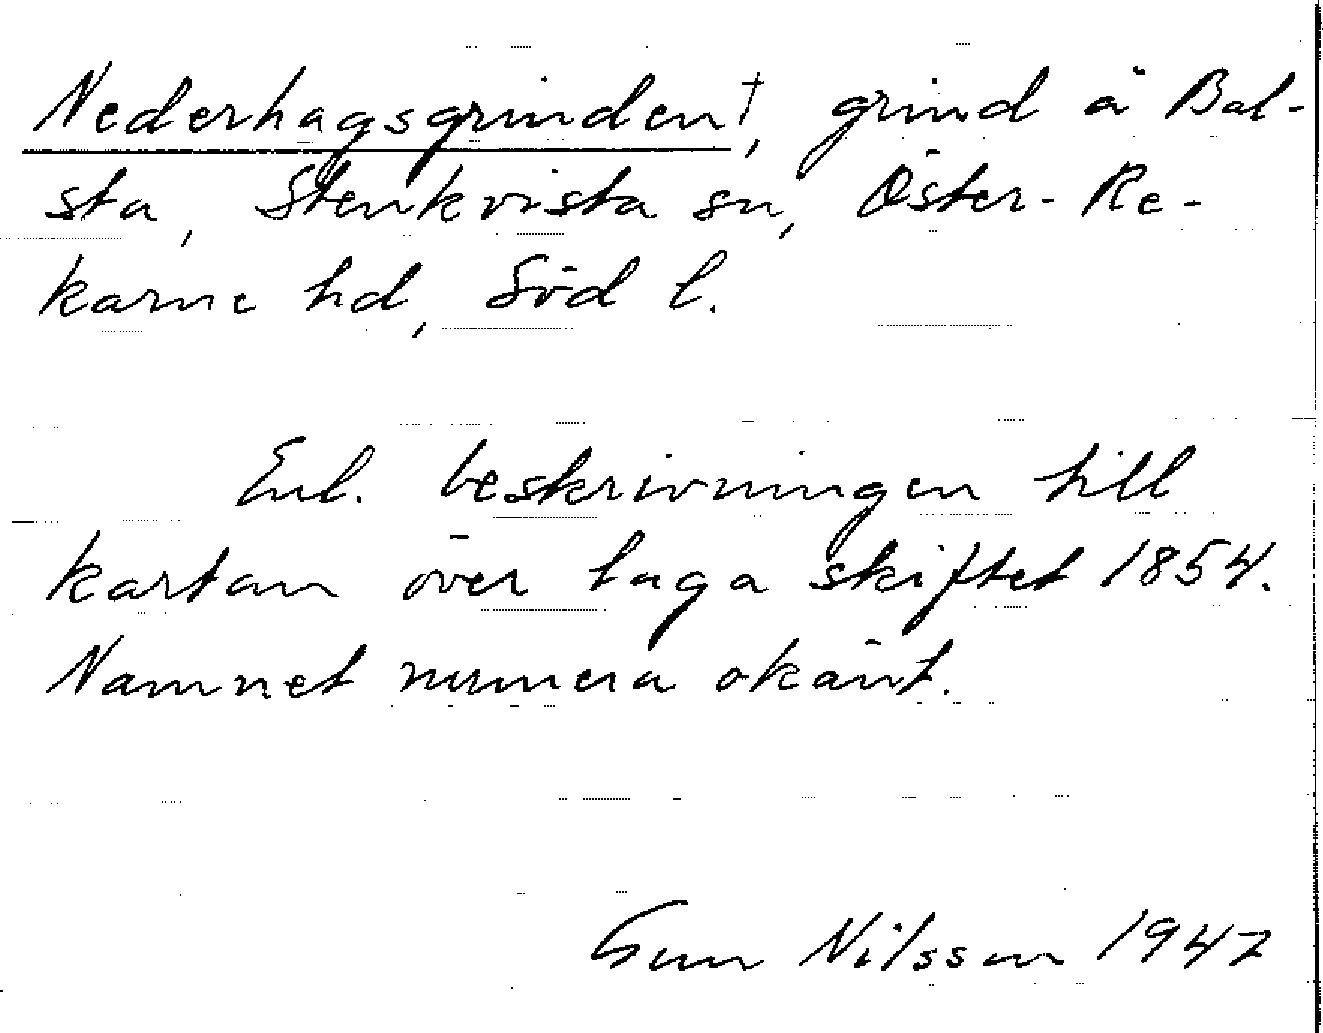 Nederhagsgrinden†, grind å Bal-
sta, Stenkvista sn, Öster-Re-
karne hd, Söd l.
Enl. beskrivningen till
kartan över laga skiftet 1854.
Namnet numera okänt.
Gun Nilsson 1947